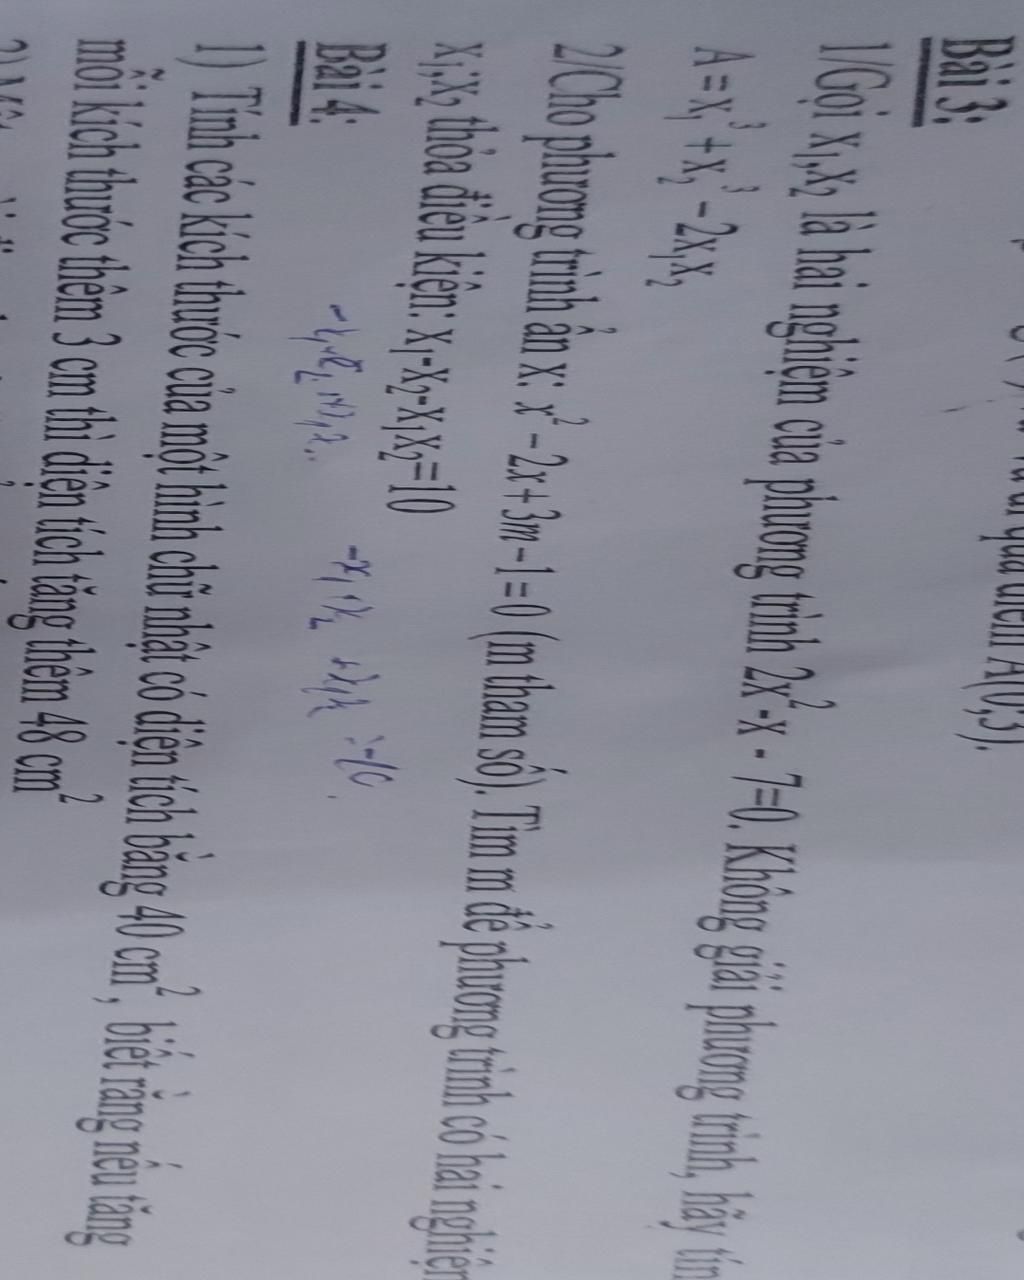 qua điểm A(0;3).
Bài 3:
1/Gọi x₁,x₂ là hai nghiệm của phương trình 2x²-x - 7=0. Không giải phương trình, hãy
A = x₁³ + x₂³ - 2x₁x₂
2/Cho phương trình ẩn x: x² - 2x + 3m - 1 = 0 (m tham số). Tìm m để phương trình có hai nghiệm
x₁,x₂ thỏa điều kiện: x₁-x₂-x₁x₂=10
Bài 4:
1) Tính các kích thước của một hình chữ nhật có diện tích bằng 40 cm², biết rằng nếu tăng
mỗi kích thước thêm 3 cm thì diện tích tăng thêm 48 cm²
2)